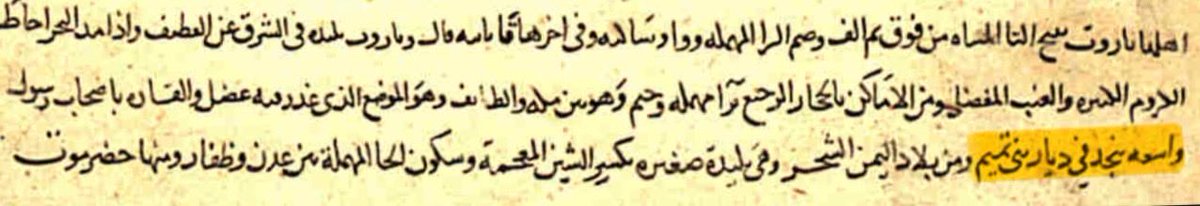 اهلها تاروت بفتح التا المثناه من فوق ثم الف وضم الرا المهمله وواو ساكنه وفى اخرها تا ثانيه قال وتاروت بليده فى الشرق عن القطيف واذا مد البحر احاط
الكروم الكثيره والعنب المفضل ومن الاماكن بالحجاز الرجيع برا مهمله وجيم وهو بين مكه والطائف وهو الموضع الذى غدر فيه عضل والقاره باصحاب رسول
واسعه بنجد في ديار بنى تميم ومن بلاد اليمن الشحر وهى بليدة صغيره بكسر الشين المعجمة وسكون الحا المهملة بين عدن وظفار ومنها حضرموت